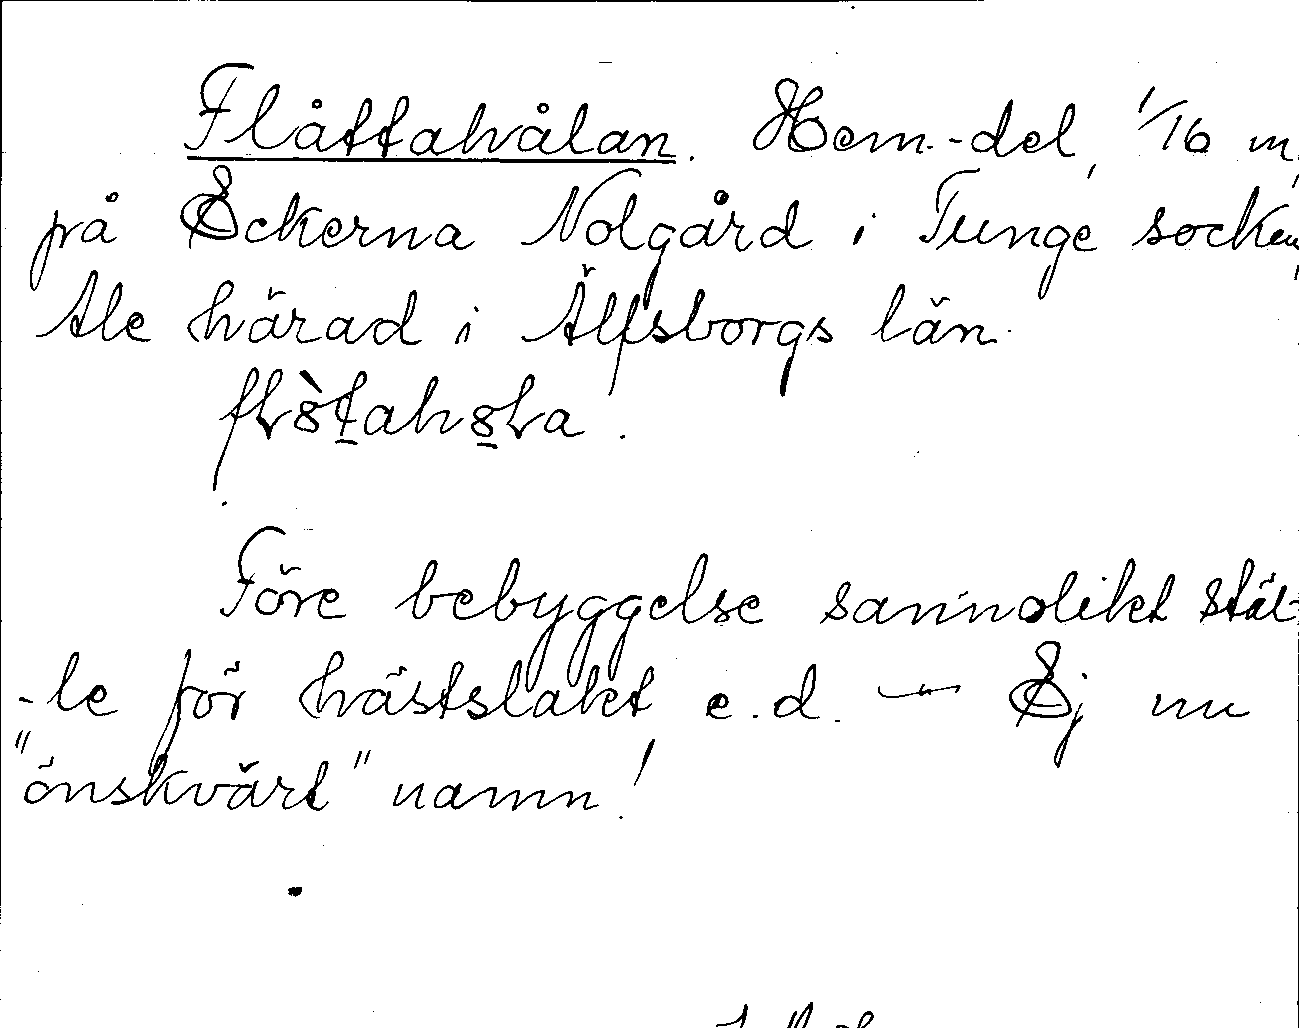 Flåttahålan. Hem.-del, 1/16 m,
på Eckerna Nolgård i Tunge socken,
Ale härad i Älfsborgs län.
Före bebyggelse sannolikt stäl-
-le för hästslakt e.d. — Ej nu
"önskvärt" namn!